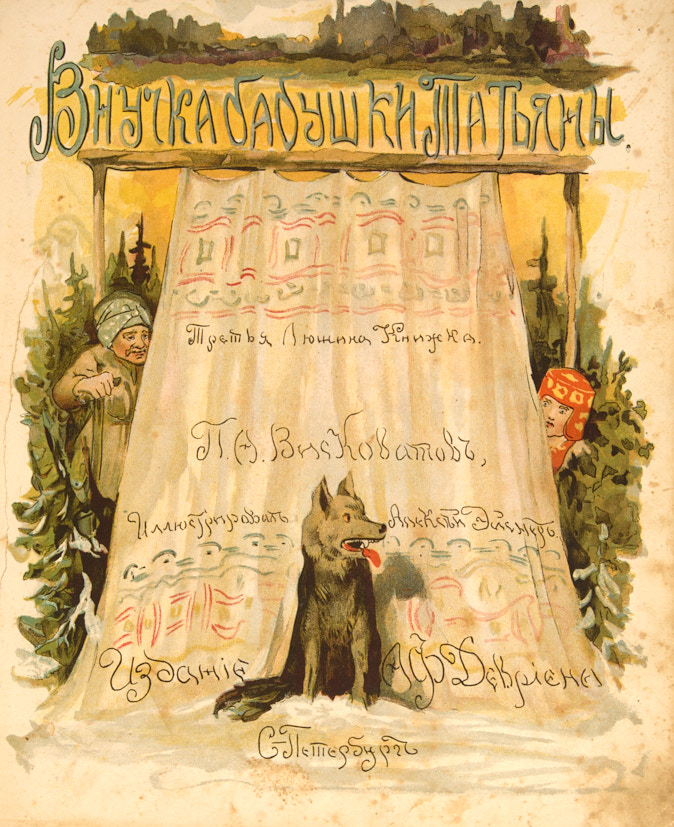 Внучка бабушки Татьяны.
Третья Люшина Книжка.
П. А. Висковатовъ,
Иллюстрировалъ Алексѣй Эйснеръ
Изданіе А Ф Девріена
С-Петербургъ